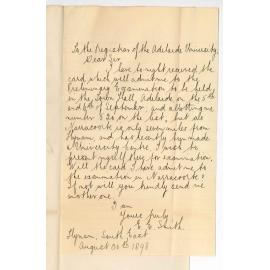 To the Registrar of the Adelaide University
Dear Sir,
I have to-night received the
card which will admit me to the
Preliminary Examination to be held
in the Town Hall, Adelaide on the 5th
and 6th of September, and allotting me
number 320 on the list, but as
Narracoorte is only seven miles from
Hynam, and has recently been made
A University Centre, I wish to
present myself there for examination.
Will the card I have admit me to
the examination in Narracoorte?
If not will you kindly send me
another one.
I am
Yours truly
E. E. Smith.
Hynam, South East
August 30th 1898